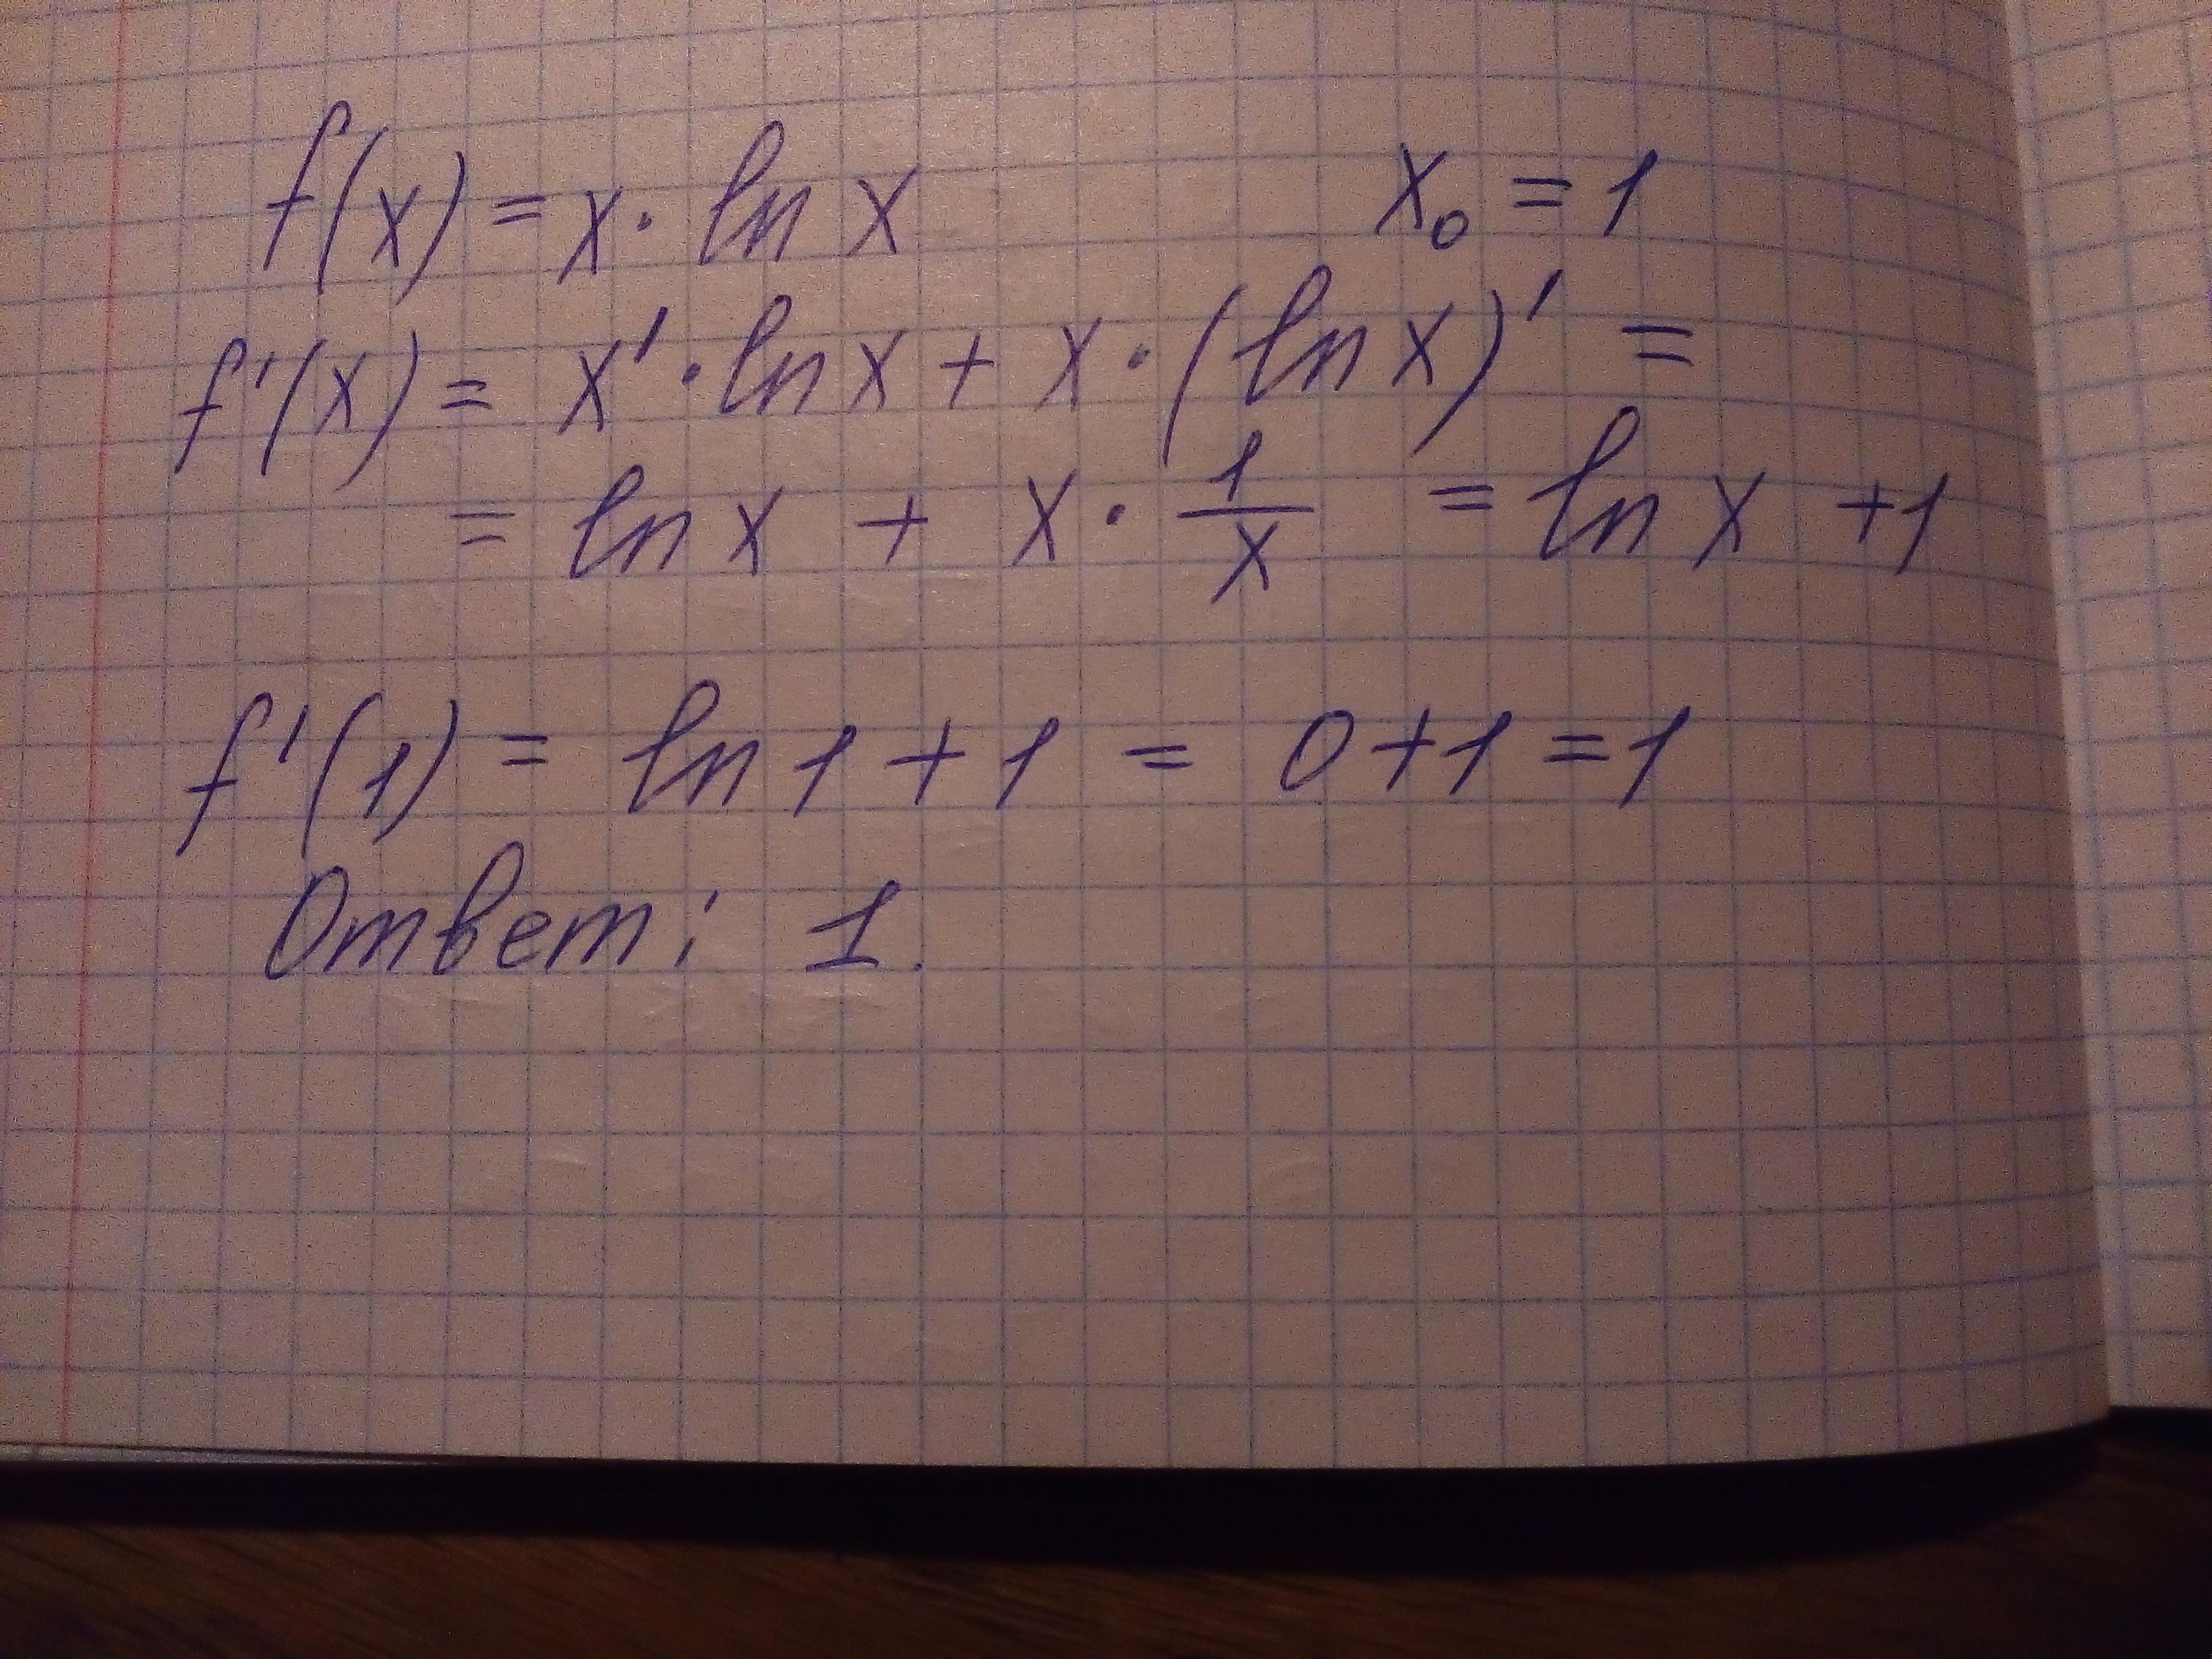 f(x) = x · ln x x₀ = 1
f'(x) = x' · ln x + x · (ln x)' =
= ln x + x · 1/x = ln x + 1
f'(1) = ln 1 + 1 = 0 + 1 = 1
Ответ: 1.